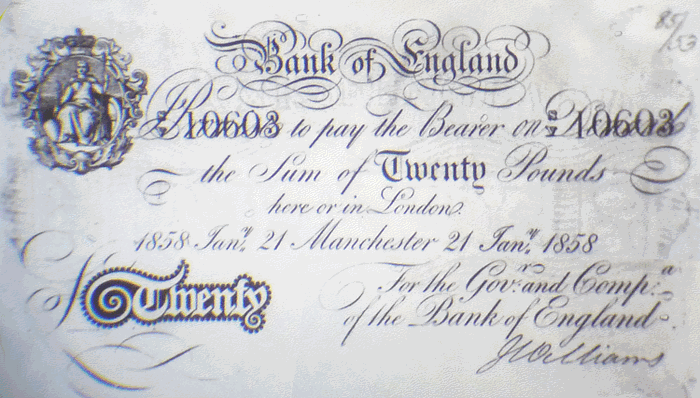 85/53
Bank of England
I Promise to pay the Bearer on Demand
10603 10603
the Sum of Twenty Pounds
here or in London.
1858 Janʸ. 21 Manchester 21 Janʸ. 1858
Twenty
For the Govʳ. and Compᵃ.
of the Bank of England.
J Williams